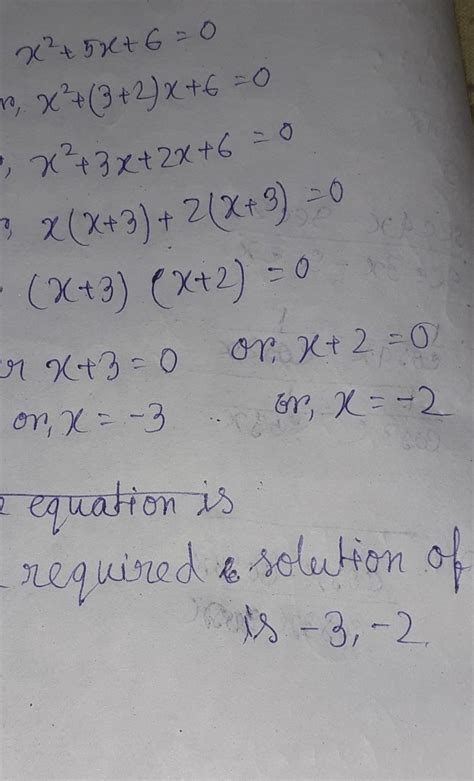 x²+5x+6=0
or, x²+(3+2)x+6=0
, x²+3x+2x+6=0
, x(x+3)+2(x+3)=0
(x+3)(x+2)=0
or x+3=0 or, x+2=0
or, x=-3 or, x=-2
equation is
required solution of
is -3, -2.